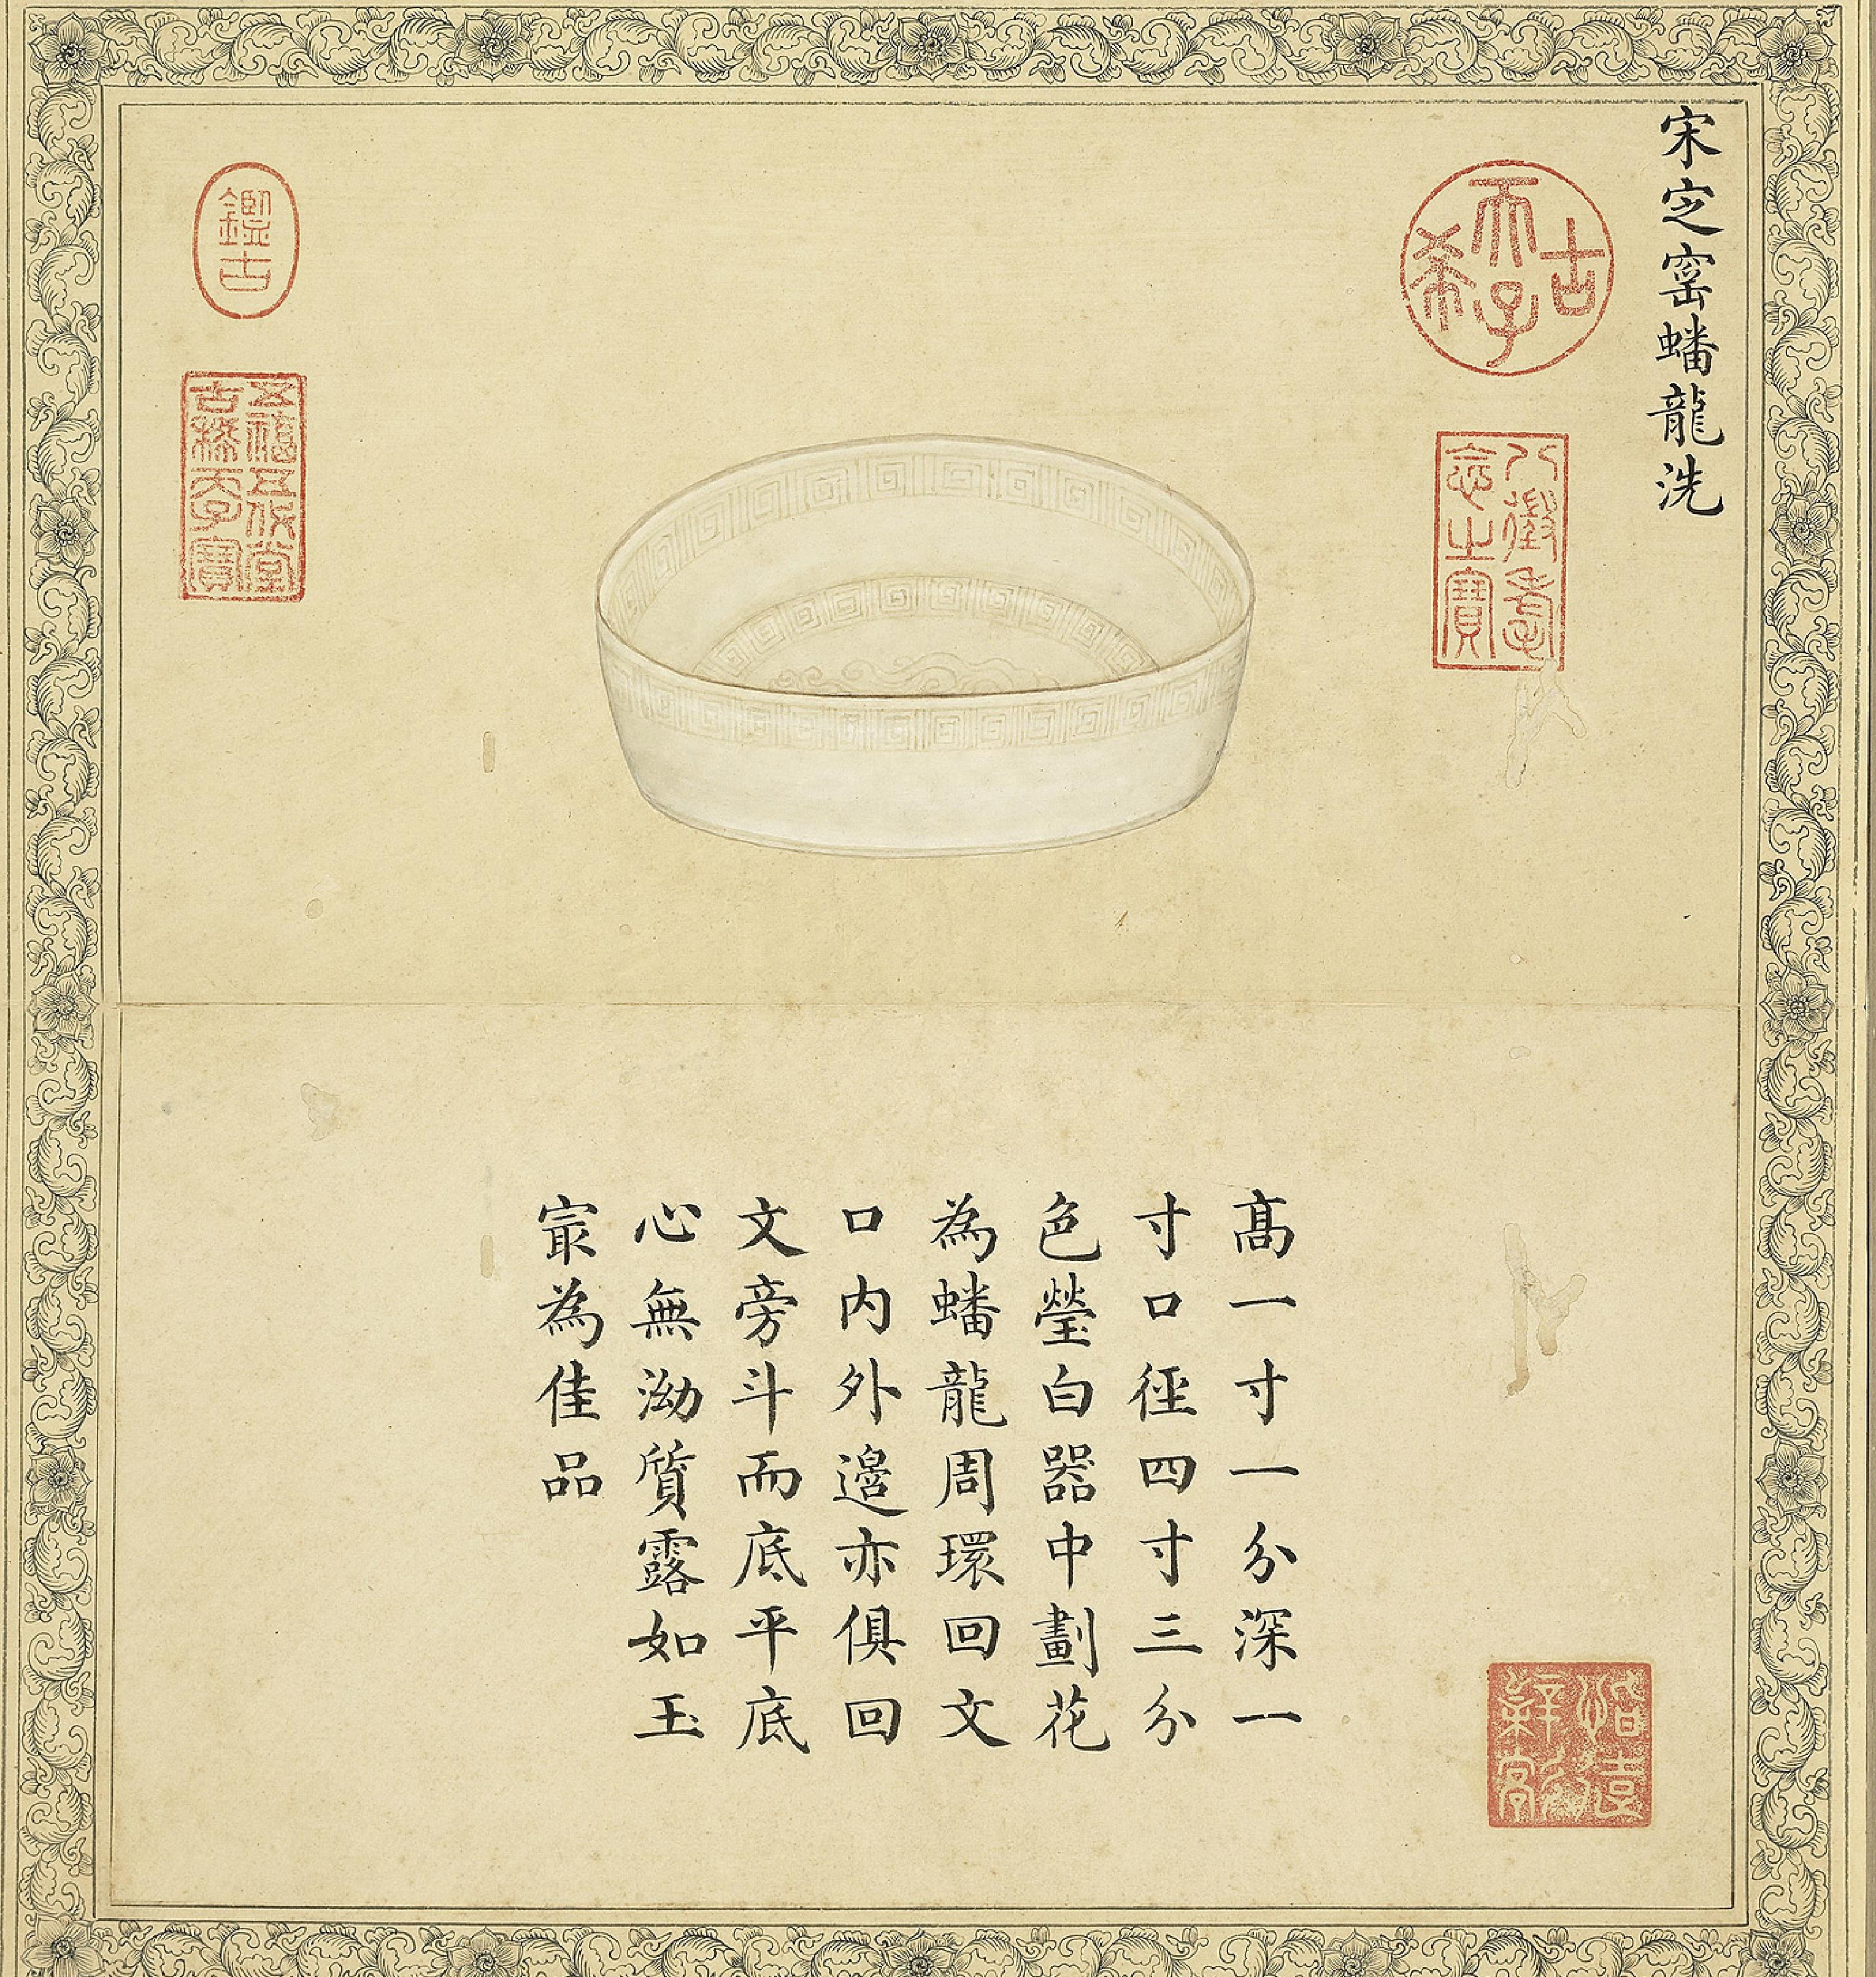 宋㝎窑蟠龍洗
古希天子
八徵耄念之寶
鑑古
五福五代堂
古稀天子寶
髙一寸一分深一
寸口徑四寸三分
色瑩白器中劃花
為蟠龍周環回文
口内外邉亦俱回
文旁斗而底平底
心無泑質露如玉
㝡為佳品